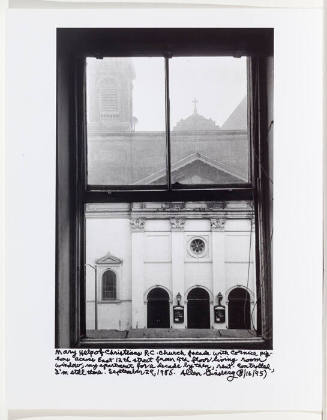 Mary Help of Christians R.C. Church facade with Cornice, pig-
eons across East 12th street from 4th floor living room
window, my apartment for a decade by then, rent Controlled,
I'm still there. September 29, 1986. Allen Ginsberg